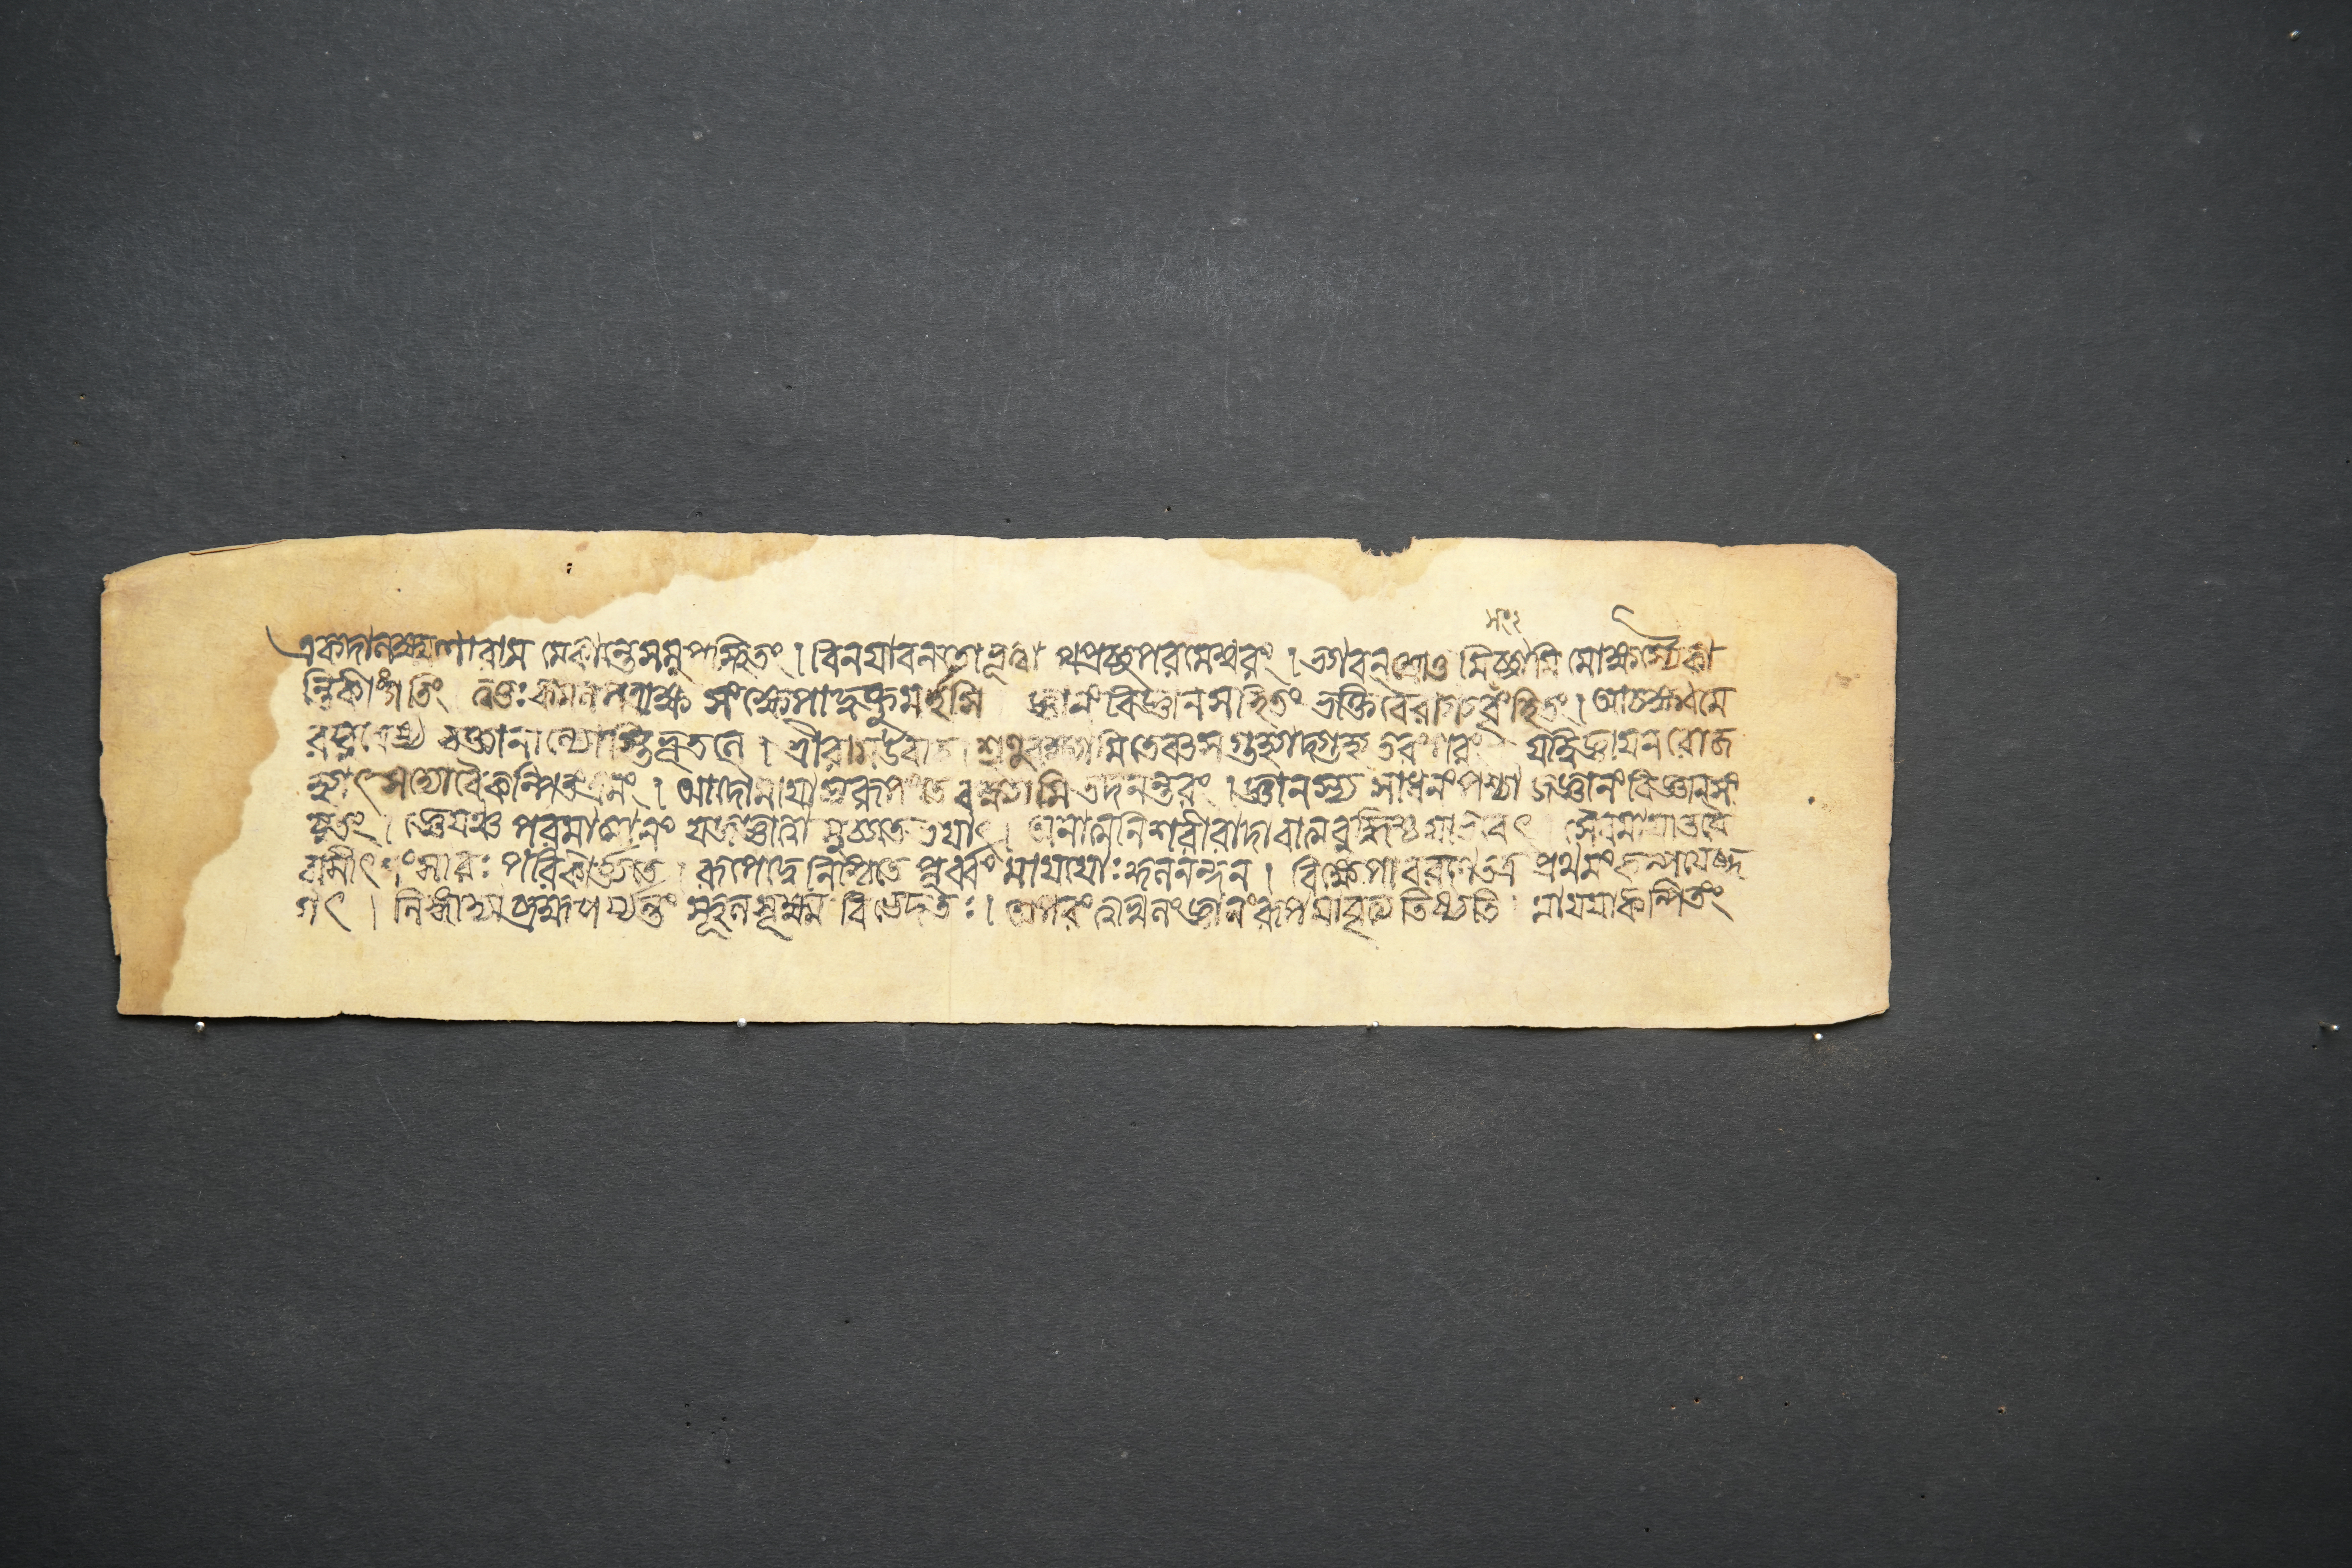 একদালক্ষ্মণোরাম মেকান্তেসমুপস্থিতং। বিনযাবনতোভূত্বা পপ্রচ্ছপরমেশ্বরং। ভগবন্শ্রোতু মিচ্ছামি মোক্ষস্যৈকা
ন্তিকীংগতিং ত্বত্তঃকমলপত্রাক্ষ সংক্ষেপাদ্বক্তুমর্হসি জ্ঞানংবিজ্ঞানসহিতং ভক্তিবৈরাগ্যবৃংহিতং। আচক্ষ্বমে
রঘুশ্রেষ্ঠ বক্তানান্যোস্তিভূতলে। শ্রীরামউবাচ। শৃণুবক্ষ্যামিতেবৎসগুহ্যাদ্গুহ্যতরংপরং যদ্বিজ্ঞাযনরোজ
হ্যাৎসদ্যোবৈকল্পিকভ্রমং। আদৌমাযাস্বরূপংতেবক্ষ্যামিতদনন্তরং। জ্ঞানস্য সাধনংপশ্চাজ্জ্ঞানংবিজ্ঞানসং
যুতং। জ্ঞেযঞ্চপরমাত্মানং যজ্জ্ঞাত্বামুচ্যতেভযাৎ। অনাত্মনিশরীরাদাবাত্মবুদ্ধিস্তুযাভবেৎ সৈবমাযাতযৈ
বাসৌসংসারঃ পরিকল্প্যতে। রূপেদ্বেনিশ্চিতে পূর্ব্বং মাযাযাঃকুলনন্দন। বিক্ষেপাবরণেতত্র প্রথমংকল্পযেজ্জ
গৎ। লিঙ্গাদ্যব্রহ্মপর্য্যন্তং স্থূলসূক্ষ্ম বিভেদতঃ। অপরংত্বখিলংজ্ঞানংরূপমাবৃত্য তিষ্ঠতি মাযযাকল্পিতং